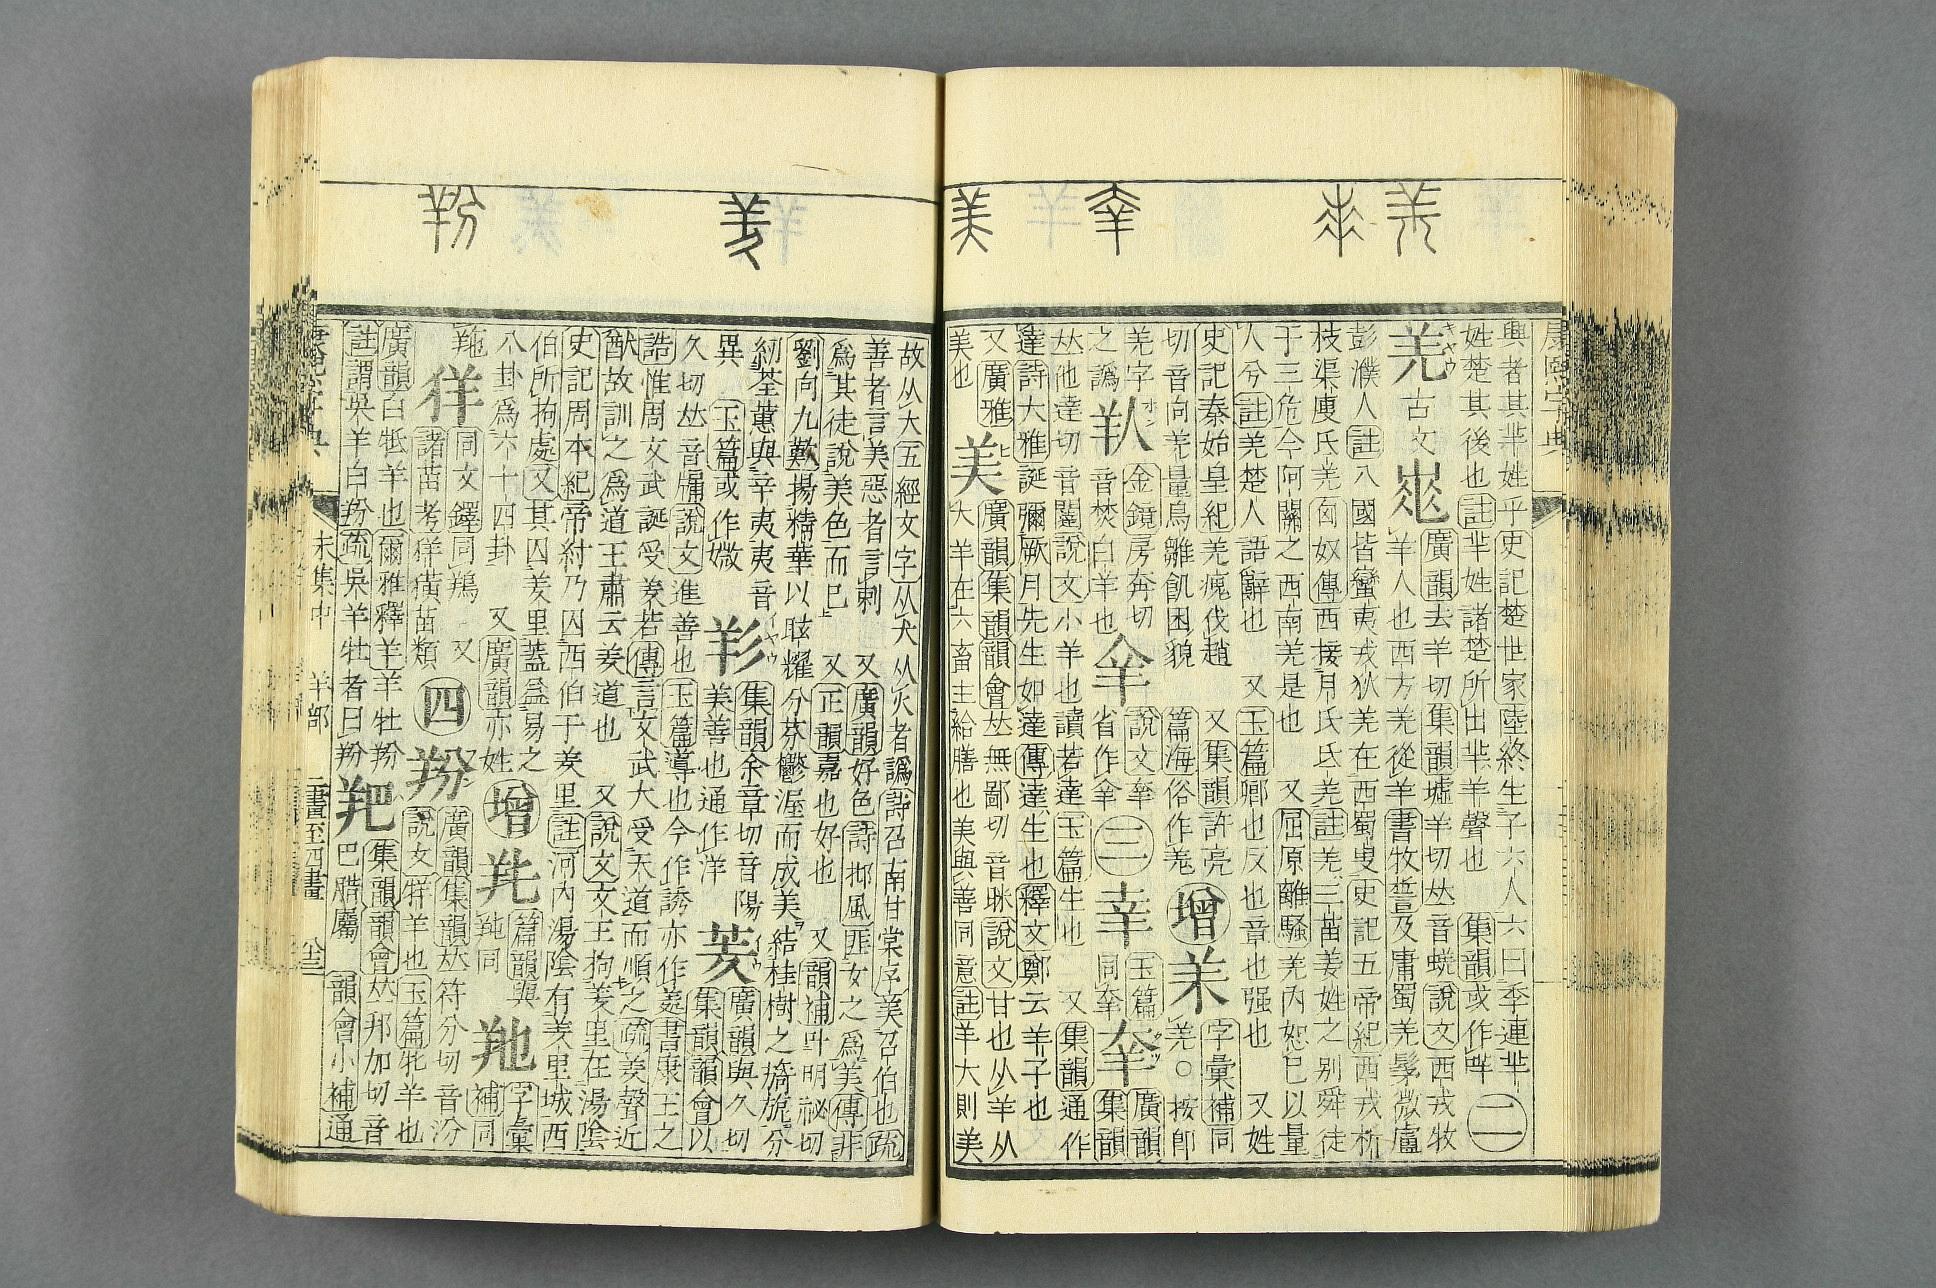 羌
羍
美
羑
羒
康熙字典
與者其羋姓乎史記楚世家陸終生子六人六曰季連羋
姓楚其後也註羋姓諸楚所出羋羊聲也 集韻或作哶 二
羌 古文 廣韻去羊切集韻墟羊切𠀤音蜣說文西戎牧
羊人也西方羌從羊書牧誓及庸蜀羌髳微盧
彭濮人註八國皆蠻夷戎狄羌在西蜀叟史記五帝紀西戎析
枝渠廋氐羌匈奴傳西接月氏氐羌註羌三苗姜姓之別舜徙
于三危今阿關之西南羌是也 又屈原離騷羌內恕已以量
人兮註羌楚人語辭也 又玉篇卿也反也章也强也 又姓
史記秦始皇紀羌瘣伐趙 又集韻許亮
切音向羌量鳥雛飢困貌 篇海俗作羗 增 字彙補同羌○按卽
羌字之譌 金鏡房奔切音焚白羊也 說文羍省作 三 玉篇同羍 羍 廣韻集韻
𠀤他達切音闥說文小羊也讀若達玉篇生也 又集韻通作
達詩大雅誕彌厥月先生如達傳達生也釋文鄭云羊子也
又廣雅美也 美 廣韻集韻韻會𠀤無鄙切音眯說文甘也从羊从
大羊在六畜主給膳也美與善同意註羊大則美
故从大五經文字从犬从火者譌詩召南甘棠序美召伯也疏
善者言美惡者言刺 又廣韻好色詩邶風匪女之爲美傳非
爲其徒說美色而已 又正韻嘉也好也 又韻補叶明祕切
劉向九歎揚精華以眩燿分芬鬱渥而成美結桂樹之旖旎分
紉荃蕙與辛夷夷音
異 玉篇或作媺 集韻余章切音陽美善也通作洋 羑 廣韻與久切集韻韻會以
久切𠀤音牖說文進善也玉篇導也今作誘亦作羑書康王之
誥惟周文武誕受羑若傳言文武大受天道而順之疏羑聲近
猷故訓之爲道王肅云羑道也 又說文文王拘羑里在湯陰
史記周本紀帝紂乃囚西伯于羑里註河內湯陰有羑里城西
伯所拘處又其囚羑里蓋益易之
八卦爲六十四卦 又廣韻亦姓 增 篇韻與同 字彙補同
同文鐸同鴹 又諸苗考𤞞獚苗類 四 羒 廣韻集韻𠀤符分切音汾說文牂羊也玉篇牝羊也
廣韻白羝羊也爾雅釋羊羊牡羒
註謂吳羊白羒疏吳羊牡者曰羒 羓 集韻韻會𠀤邦加切音巴腊屬 韻會小補通
康熙字典 未集中 羊部 二畫至四畫